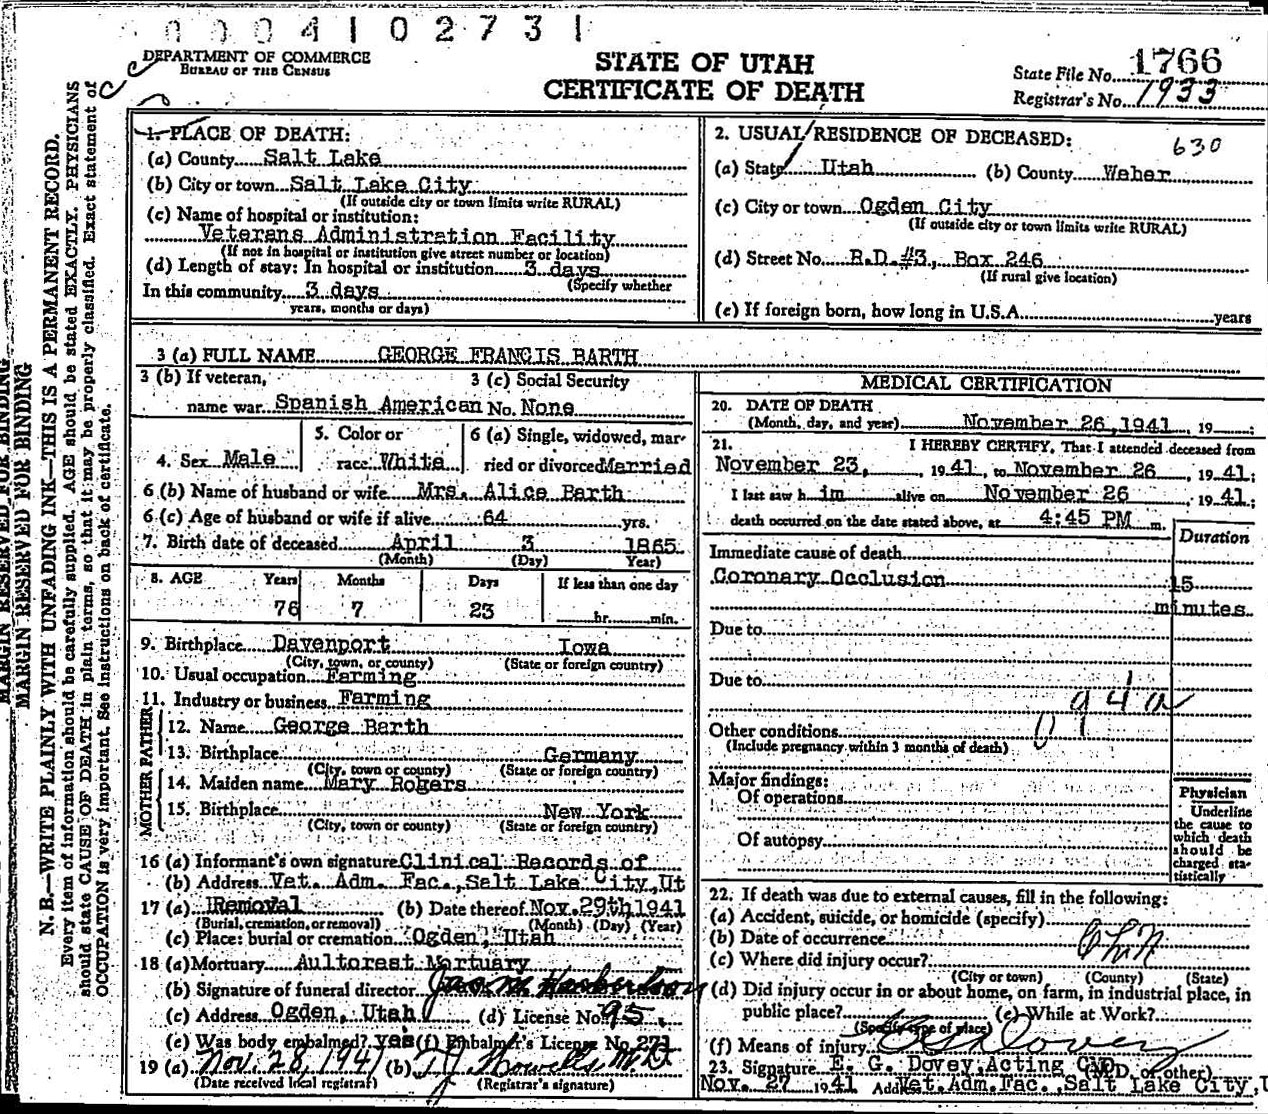 0004102731
DEPARTMENT OF COMMERCE
BUREAU OF THE CENSUS
STATE OF UTAH
CERTIFICATE OF DEATH
State File No. 1766
Registrar's No. 1933
MARGIN RESERVED FOR BINDING
MARGIN RESERVED FOR BINDING
N. B.—WRITE PLAINLY WITH UNFADING INK—THIS IS A PERMANENT RECORD.
Every item of information should be carefully supplied. AGE should be stated EXACTLY. PHYSICIANS
should state CAUSE OF DEATH in plain terms, so that it may be properly classified. Exact statement of
OCCUPATION is very important. See instructions on back of certificate.
1. PLACE OF DEATH:
(a) County Salt Lake
(b) City or town Salt Lake City
(If outside city or town limits write RURAL)
(c) Name of hospital or institution:
Veterans Administration Facility
(If not in hospital or institution give street number or location)
(d) Length of stay: In hospital or institution 3 days
(Specify whether
In this community 3 days
years, months or days)
2. USUAL RESIDENCE OF DECEASED:
630
(a) State Utah (b) County Weber
(c) City or town Ogden City
(If outside city or town limits write RURAL)
(d) Street No. R.D.#3, Box 246
(If rural give location)
(e) If foreign born, how long in U.S.A. years
3 (a) FULL NAME GEORGE FRANCIS BARTH
3 (b) If veteran, 3 (c) Social Security
name war Spanish American No. None
4. Sex Male 5. Color or race White 6 (a) Single, widowed, married or divorced Married
6 (b) Name of husband or wife Mrs. Alice Barth
6 (c) Age of husband or wife if alive 64 yrs.
7. Birth date of deceased April 3 1865
(Month) (Day) Year)
8. AGE Years Months Days If less than one day
76 7 23 hr. min.
9. Birthplace Davenport Iowa
(City, town, or county) (State or foreign country)
10. Usual occupation Farming
11. Industry or business Farming
FATHER
12. Name George Barth
13. Birthplace Germany
(City, town or county) (State or foreign country)
MOTHER
14. Maiden name Mary Rogers
15. Birthplace New York
(City, town or county) (State or foreign country)
16 (a) Informant's own signature Clinical Records of
(b) Address Vet. Adm. Fac., Salt Lake City, Ut
17 (a) Removal (b) Date thereof Nov. 29th 1941
(Burial, cremation, or removal) (Month) (Day) (Year)
(c) Place: burial or cremation Ogden, Utah
18 (a) Mortuary Aultorest Mortuary
(b) Signature of funeral director
(c) Address Ogden, Utah (d) License No. 95
(e) Was body embalmed? yes (f) Embalmer's License No. 271
19 (a) Nov. 28, 1941 (b) M.D.
(Date received local registrar) (Registrar's signature)
MEDICAL CERTIFICATION
20. DATE OF DEATH
(Month, day, and year) November 26, 1941, 19 ;
21. I HEREBY CERTIFY, That I attended deceased from
November 23, 19 41, to November 26, 19 41;
I last saw h im alive on November 26, 19 41;
death occurred on the date stated above, at 4:45 PM m.
Duration
Immediate cause of death
Coronary Occlusion 15
minutes
Due to
Due to
94a
Other conditions
(Include pregnancy within 3 months of death)
Major findings:
Of operations
Of autopsy
Physician
Underline
the cause to
which death
should be
charged sta-
tistically
22. If death was due to external causes, fill in the following:
(a) Accident, suicide, or homicide (specify)
(b) Date of occurrence
(c) Where did injury occur?
(City or town) (County) (State)
(d) Did injury occur in or about home, on farm, in industrial place, in
public place? (e) While at Work?
(Specify type of place)
(f) Means of injury
23. Signature E. G. Dovey, Acting CMO (M.D. or other)
Nov. 27 1941 Address Vet. Adm. Fac., Salt Lake City, U